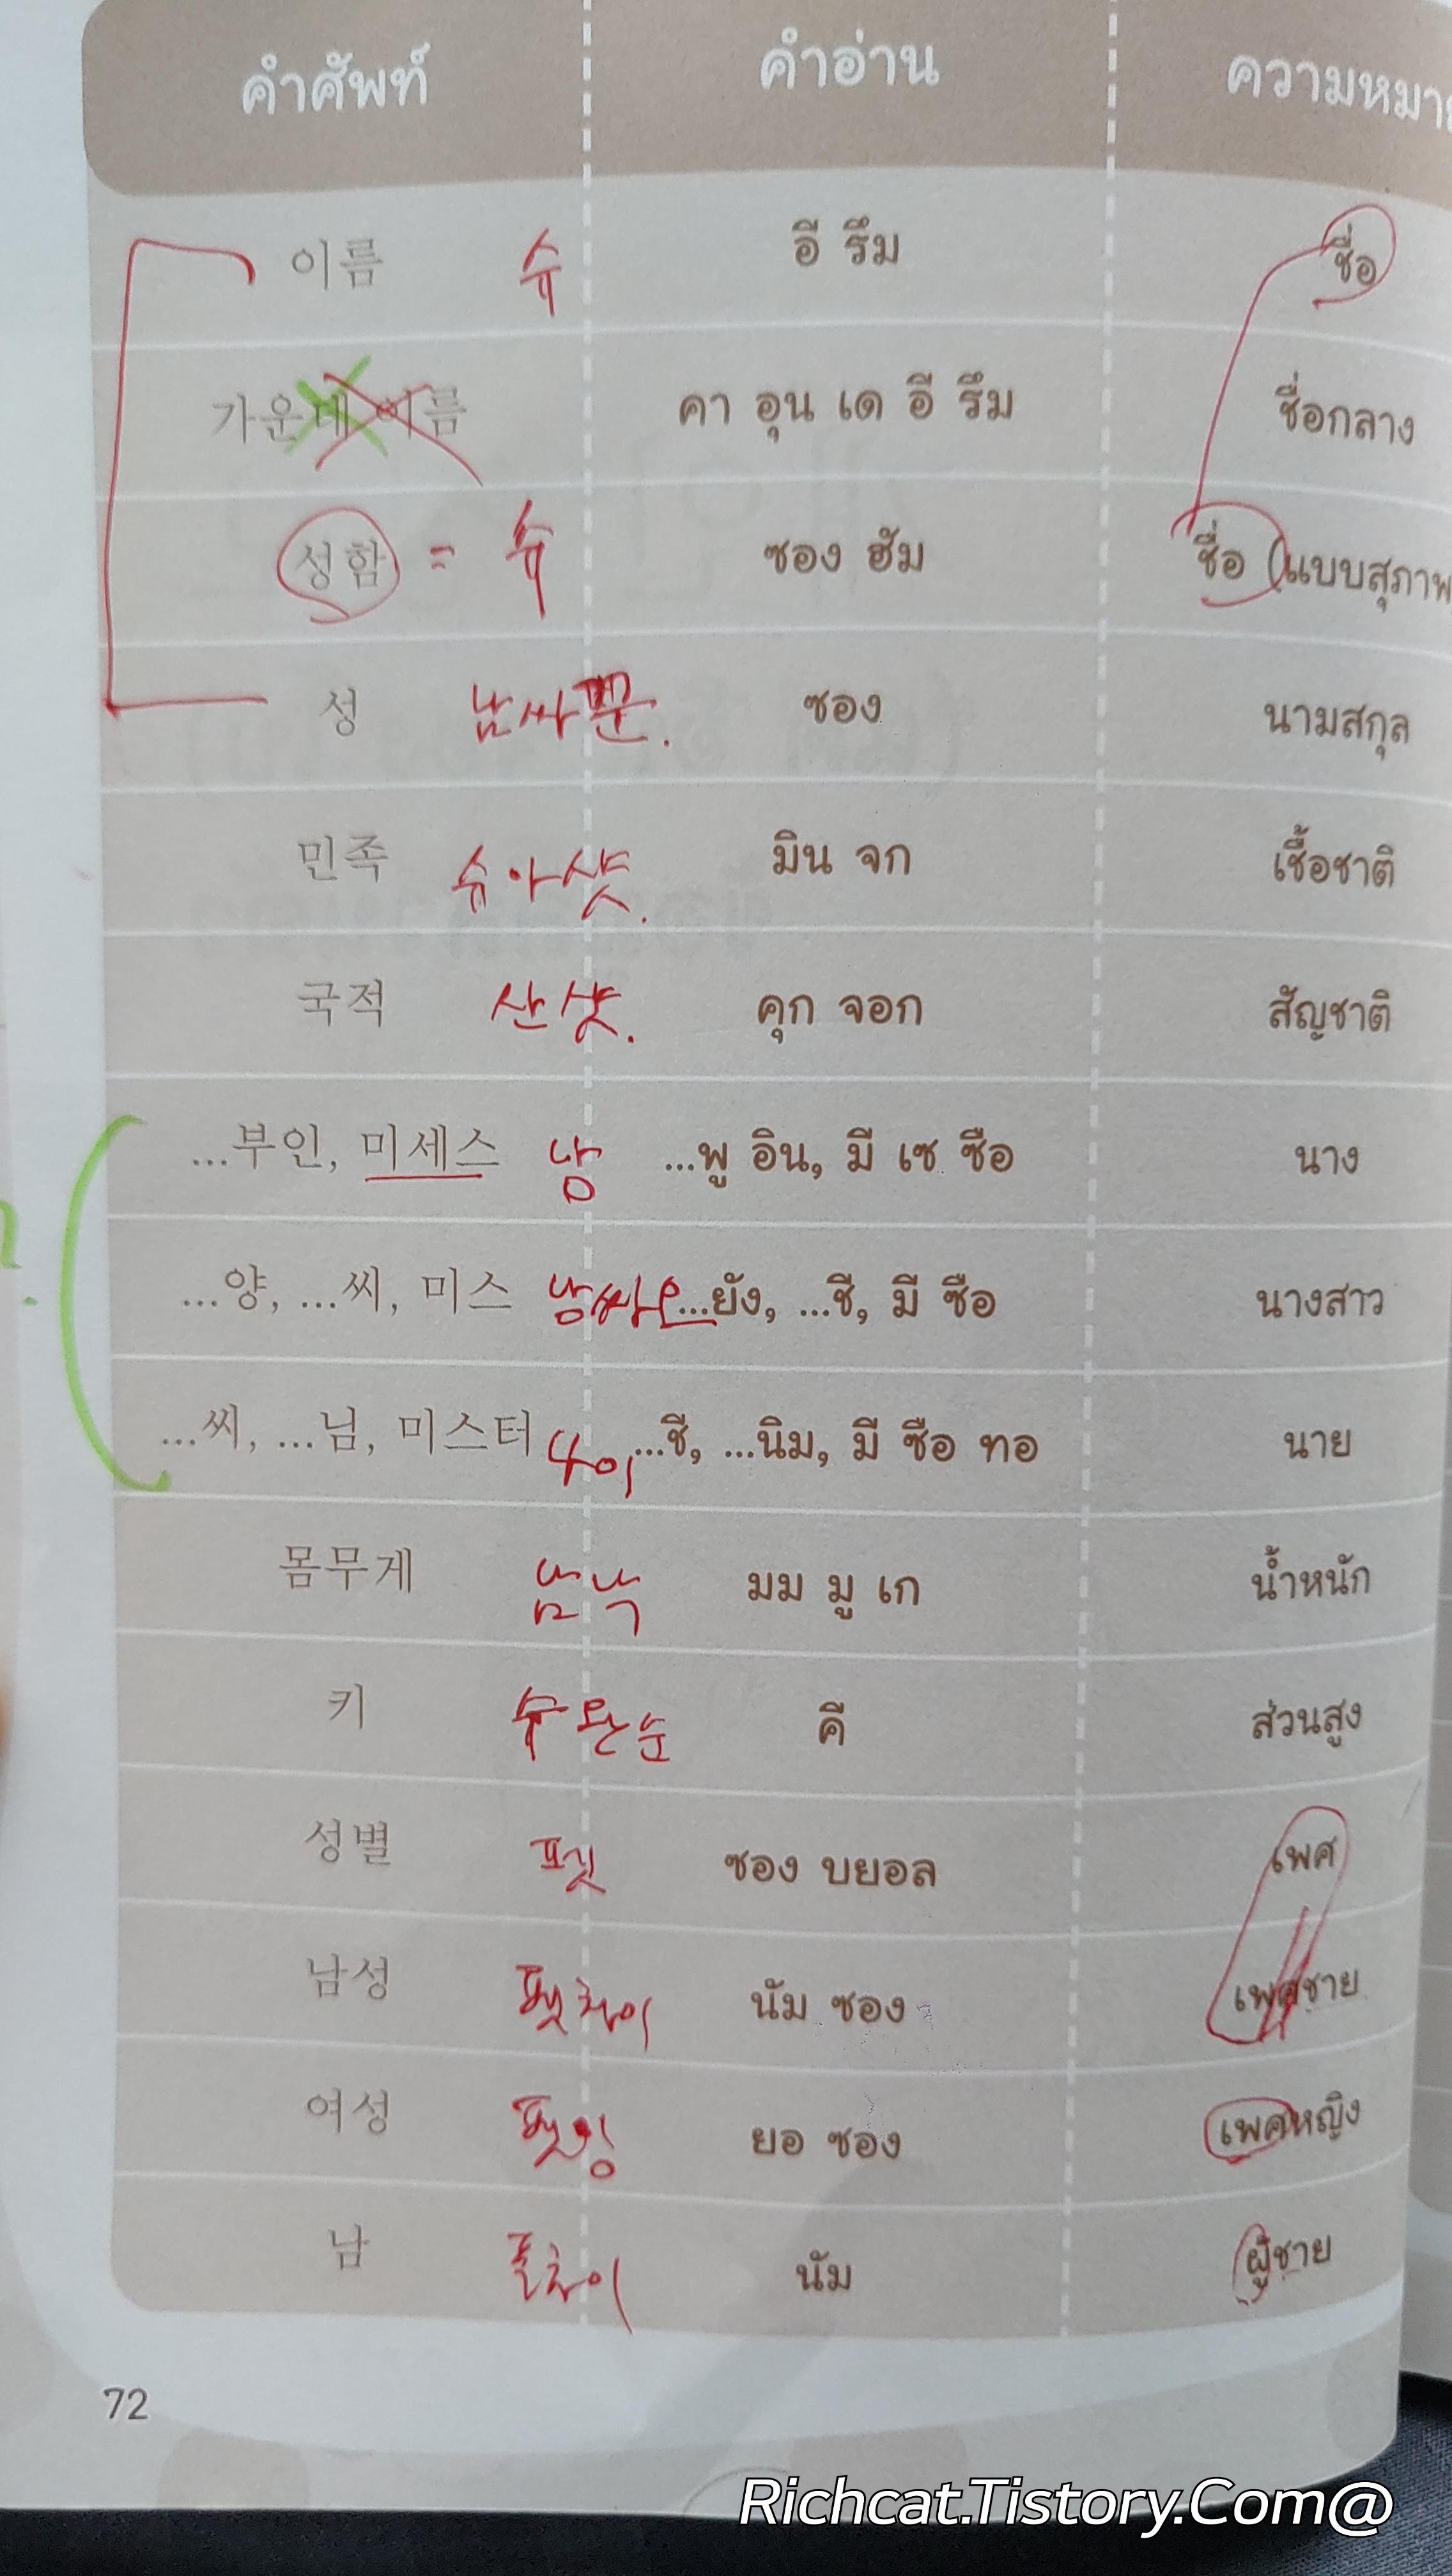 คำศัพท์ คำอ่าน ความหมาย
이름 슈 อี รึม ชื่อ
가운데 이름 คา อุน เด อี รึม ชื่อกลาง
성함 = 슈 ซอง ฮัม ชื่อ (แบบสุภาพ
성 ซอง นามสกุล
민족 슈아샷. มิน จก เชื้อชาติ
국적 산샷. คุก จอก สัญชาติ
...부인, 미세스 낭 ...พู อิน, มี เซ ซือ นาง
...양, ...씨, 미스 낭싸오 ...ยัง, ...ชี, มี ซือ นางสาว
...씨, ...님, 미스터 나이 ...ชี, ...นิม, มี ซือ ทอ นาย
몸무게 남낙 มม มู เก น้ำหนัก
키 คี ส่วนสูง
성별 펫 ซอง บยอล เพศ
남성 펫차이 นัม ซอง เพศชาย
여성 펫잉 ยอ ซอง เพศหญิง
남 นัม ผู้ชาย
72
Richcat.Tistory.Com@